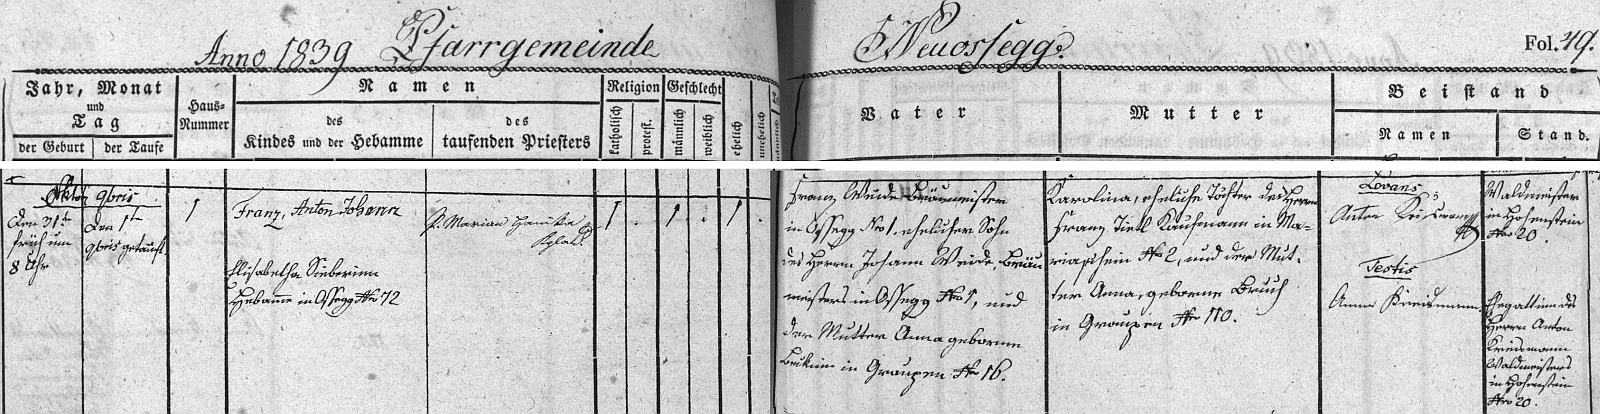 Anno 1839 Pfarrgemeinde Neuossegg. Fol. 49.
Jahr, Monat und Tag
der Geburt der Taufe
Haus-Nummer
Namen
des Kindes und der Hebamme
des taufenden Priesters
Religion
katholisch
protest.
Geschlecht
männlich
weiblich
ehelich
unehelich
Vater
Mutter
Beistand
Namen
Stand.
9bris
den 31t
früh um
8 Uhr
den 1t
9bris getauft.
1
Franz, Anton Johann
Elisabetha Sieberinn
Hebamme in Ossegg Nro 72
P. Marian
1 . 1 . 1 .
Franz Weide Bräumeister
in Ossegg Nro 1, ehelicher Sohn
des Herrn Johann Weide, Bräu
meisters in Ossegg Nro 1, und
der Mutter Anna geborne
in Graupen Nro 16.
Karolina, eheliche Tochter des Herrn
Franz Tietl Kaufmann in Ma-
riaschein Nro 2, und der Mut-
ter Anna, geborne Bruch
in Graupen Nro 110.
Levans
Anton
Testis
Anna Kreismann
Waldmeister
in Hohenstein
Nro 20.
Ehegattinn des
Herrn Anton
Kreismann
Waldmeisters
in Hohenstein
Nro 20.